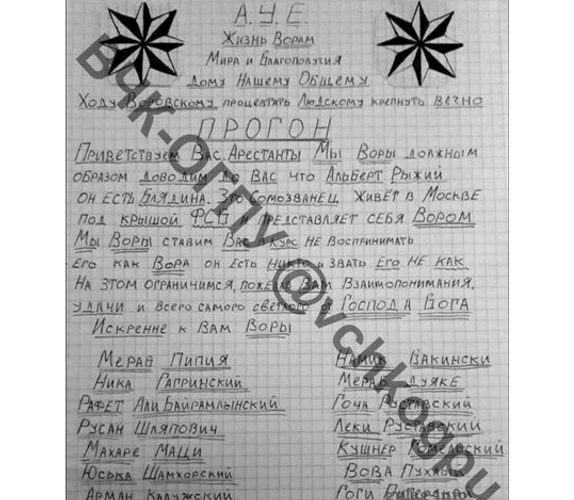 А.У.Е.
Жизнь Ворам
Мира и Благополучия
Дому Нашему Общему
Ходу Воровскому процветать Людскому крепнуть вечно
ПРОГОН
Приветствуем Вас Арестанты Мы Воры должным
образом доводим до Вас что Альберт Рыжий
он есть Блядина. Это Сомозванец Живёт в Москве
под крышой ФСБ и представляет себя Вором
Мы Воры ставим Вас в курс не воспринимать
Его как Вора он есть никто и звать Его не как
На этом ограничимся, пожелав Вам Взаимопонимания,
удачи и всего самого светлого от Господа Бога
Искренне к Вам Воры
Мераб Пипия
Ника Гагринский
Рафет Али Байрамлынский
Русан Шляпович
Махаре Маци
Юська Шамхорский
Арман Калужский
Намик Бакински
Мераб Дуяке
Гоча Руставский
Леки Руставский
Кушнер Гомелский
Вова Пухлый
Гоги
ВЧК-ОГПУ @vchkogpu